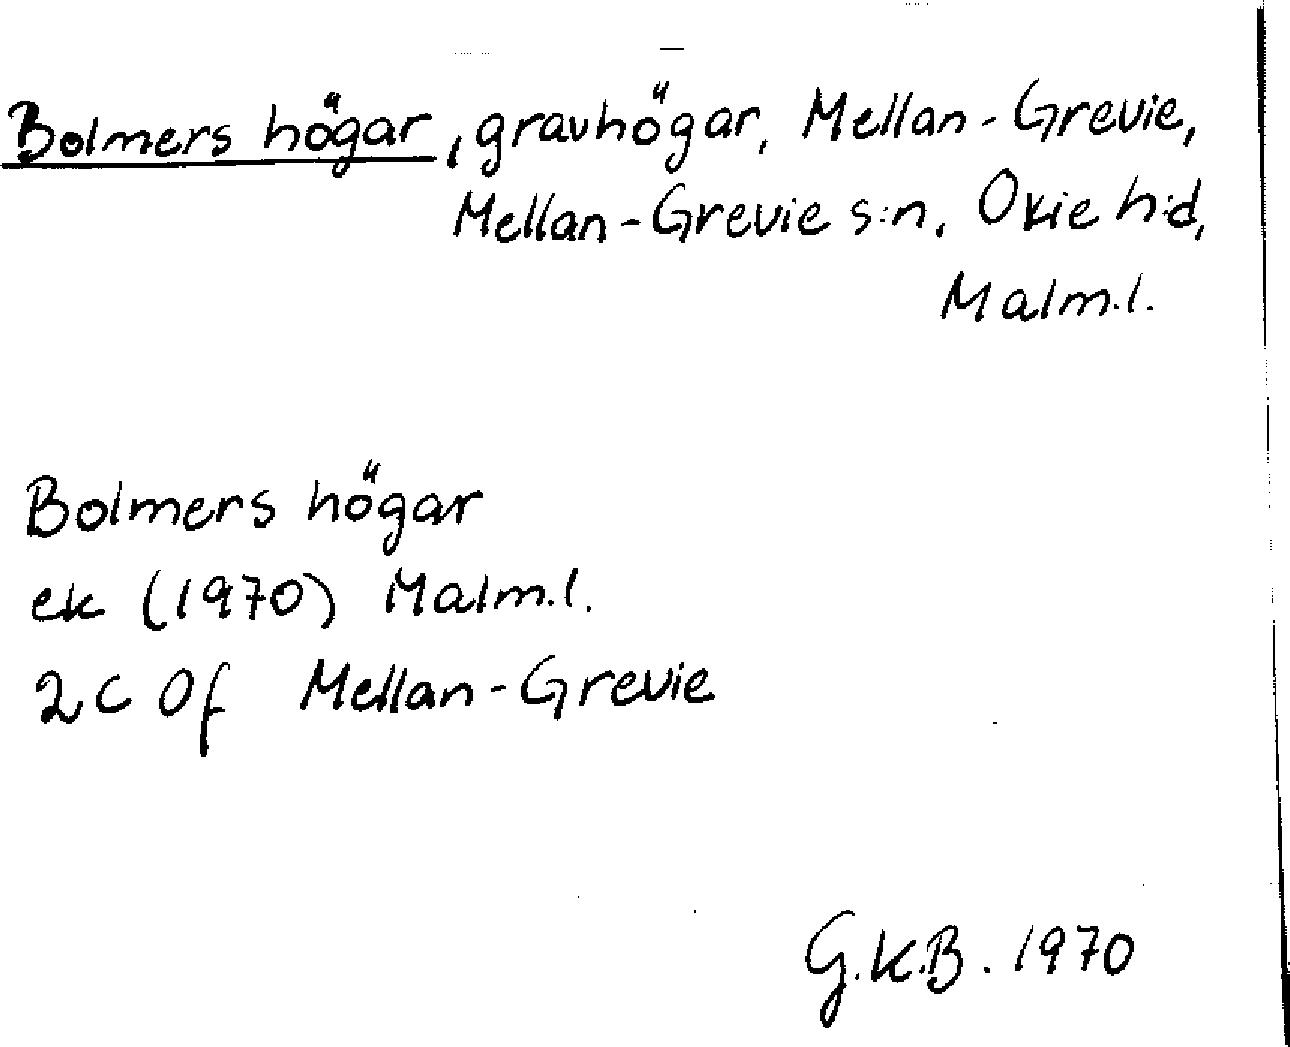 Bolmers högar, gravhögar, Mellan-Grevie,
Mellan-Grevie s:n, Oxie h:d,
Malm.l.
Bolmers högar
ek (1970) Malm.l.
2C Of Mellan-Grevie
G.K.B. 1970